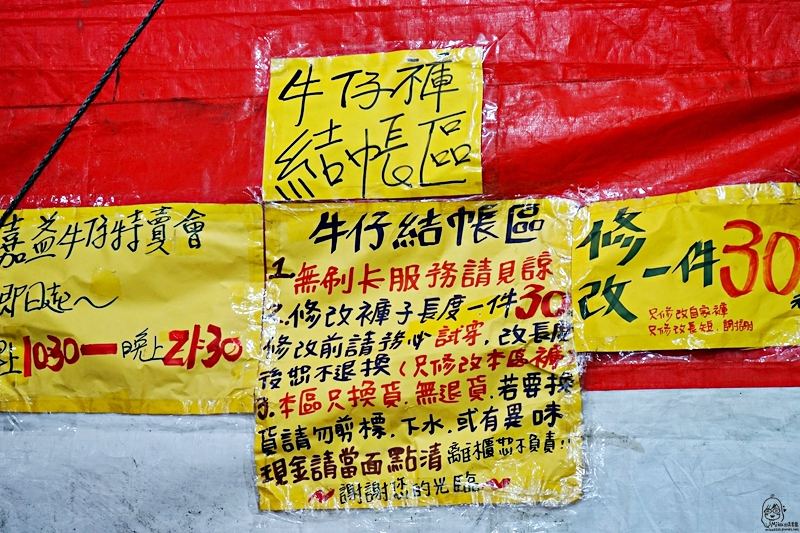 牛仔褲
結帳區
嘉益牛仔特賣會
即日起～
上1030—晚上21:30
牛仔結帳區
1.無刷卡服務請見諒
2.修改褲子長度一件30
修改前請務必試穿,改長度
後恕不退換(只修改本區褲
3.本區只換貨.無退貨.若要換
貨請勿剪標.下水.或有異味
現金請當面點清離櫃恕不負責!
謝謝您的光臨
修改一件30
只修改自家褲
只修改長短.謝謝